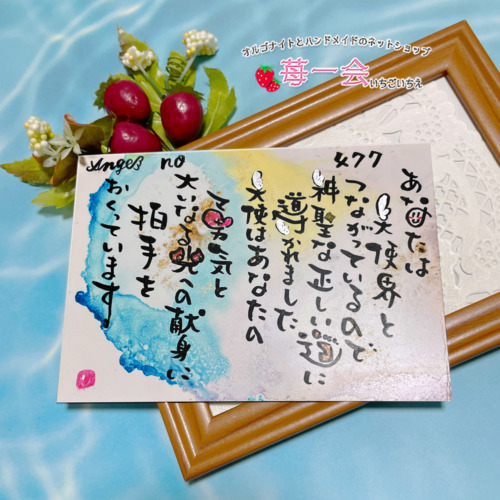 オルゴナイトとハンドメイドのネットショップ
苺一会
いちごいちえ
Angel no 477
あなたは
天使界と
つながっているので
神聖な正しい道に
導かれました
天使はあなたの
勇気と
大いなる光への献身に
拍手を
おくっています